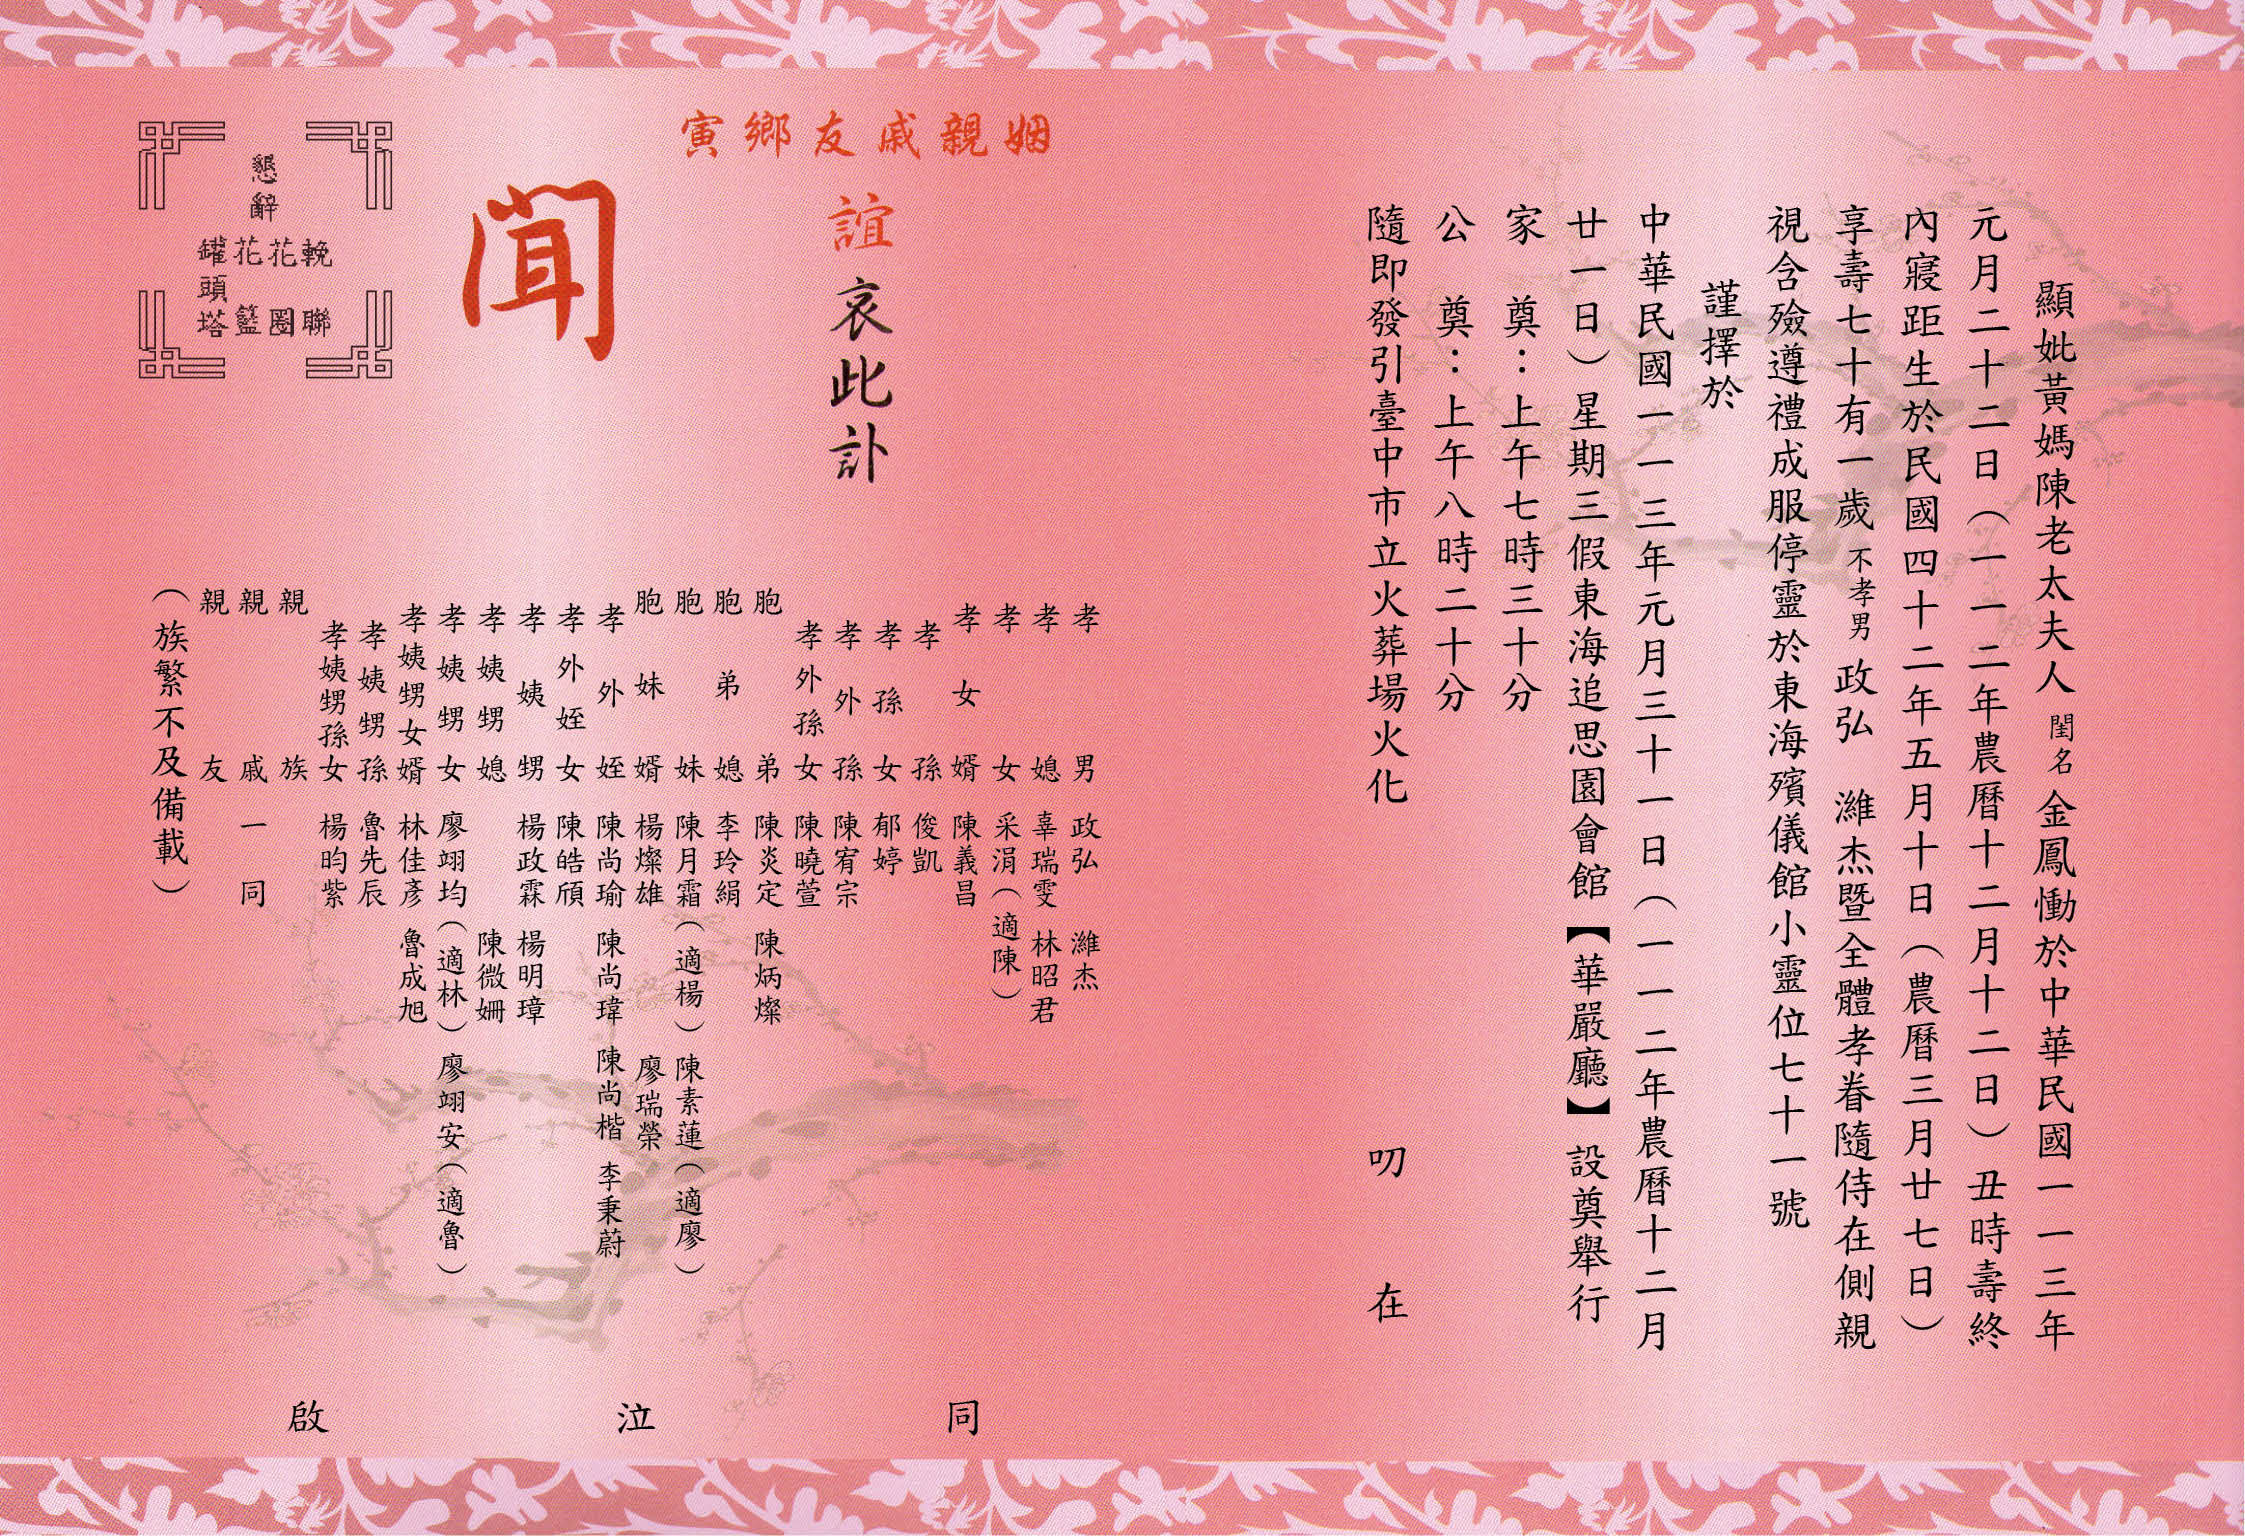 顯妣黃媽陳老太夫人 閨名 金鳳慟於中華民國一一三年
元月二十二日（一一二年農曆十二月十二日）丑時壽終
內寢距生於民國四十二年五月十日（農曆三月廿七日）
享壽七十有一歲 不孝男 政弘 濰杰暨全體孝眷隨侍在側親
視含殮遵禮成服停靈於東海殯儀館小靈位七十一號
謹擇於
中華民國一一三年元月三十一日（一一二年農曆十二月
廿一日）星期三假東海追思園會館【華嚴廳】設奠舉行
家 奠：上午七時三十分
公 奠：上午八時二十分
隨即發引臺中市立火葬場火化 叨 在
姻親戚友鄉寅
誼哀此訃
聞
懇辭
輓聯
花圈
花籃
罐頭塔
孝男 政弘 濰杰
孝媳 辜瑞雯 林昭君
孝女 采涓（適陳）
孝女婿 陳義昌
孝孫 俊凱
孝孫女 郁婷
孝外孫 陳宥宗
孝外孫女 陳曉萱
胞弟 陳炎定 陳炳燦
胞弟媳 李玲絹
胞妹 陳月霜（適楊） 陳素蓮（適廖）
胞妹婿 楊燦雄 廖瑞榮
孝外姪 陳尚瑜 陳尚瑋 陳尚楷 李秉蔚
孝外姪女 陳皓頎
孝姨甥 楊政霖 楊明璋
孝姨甥媳 陳微姍
孝姨甥女 廖翊均（適林） 廖翊安（適魯）
孝姨甥女婿 林佳彥 魯成旭
孝姨甥孫 魯先辰
孝姨甥孫女 楊昀紫
親族
親戚一同
親友
（族繁不及備載）
同泣啟